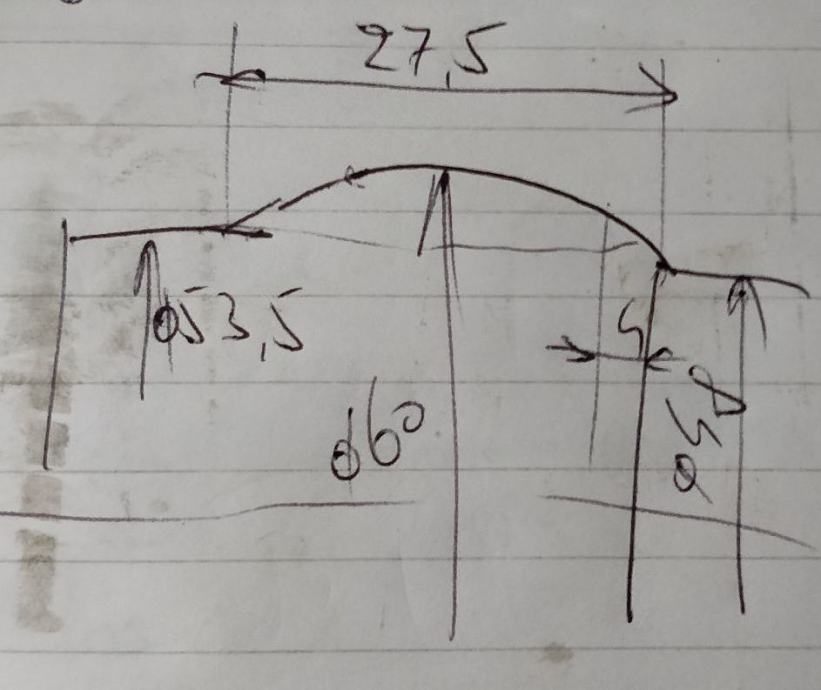 27,5
ø53,5
5
ø60
ø50